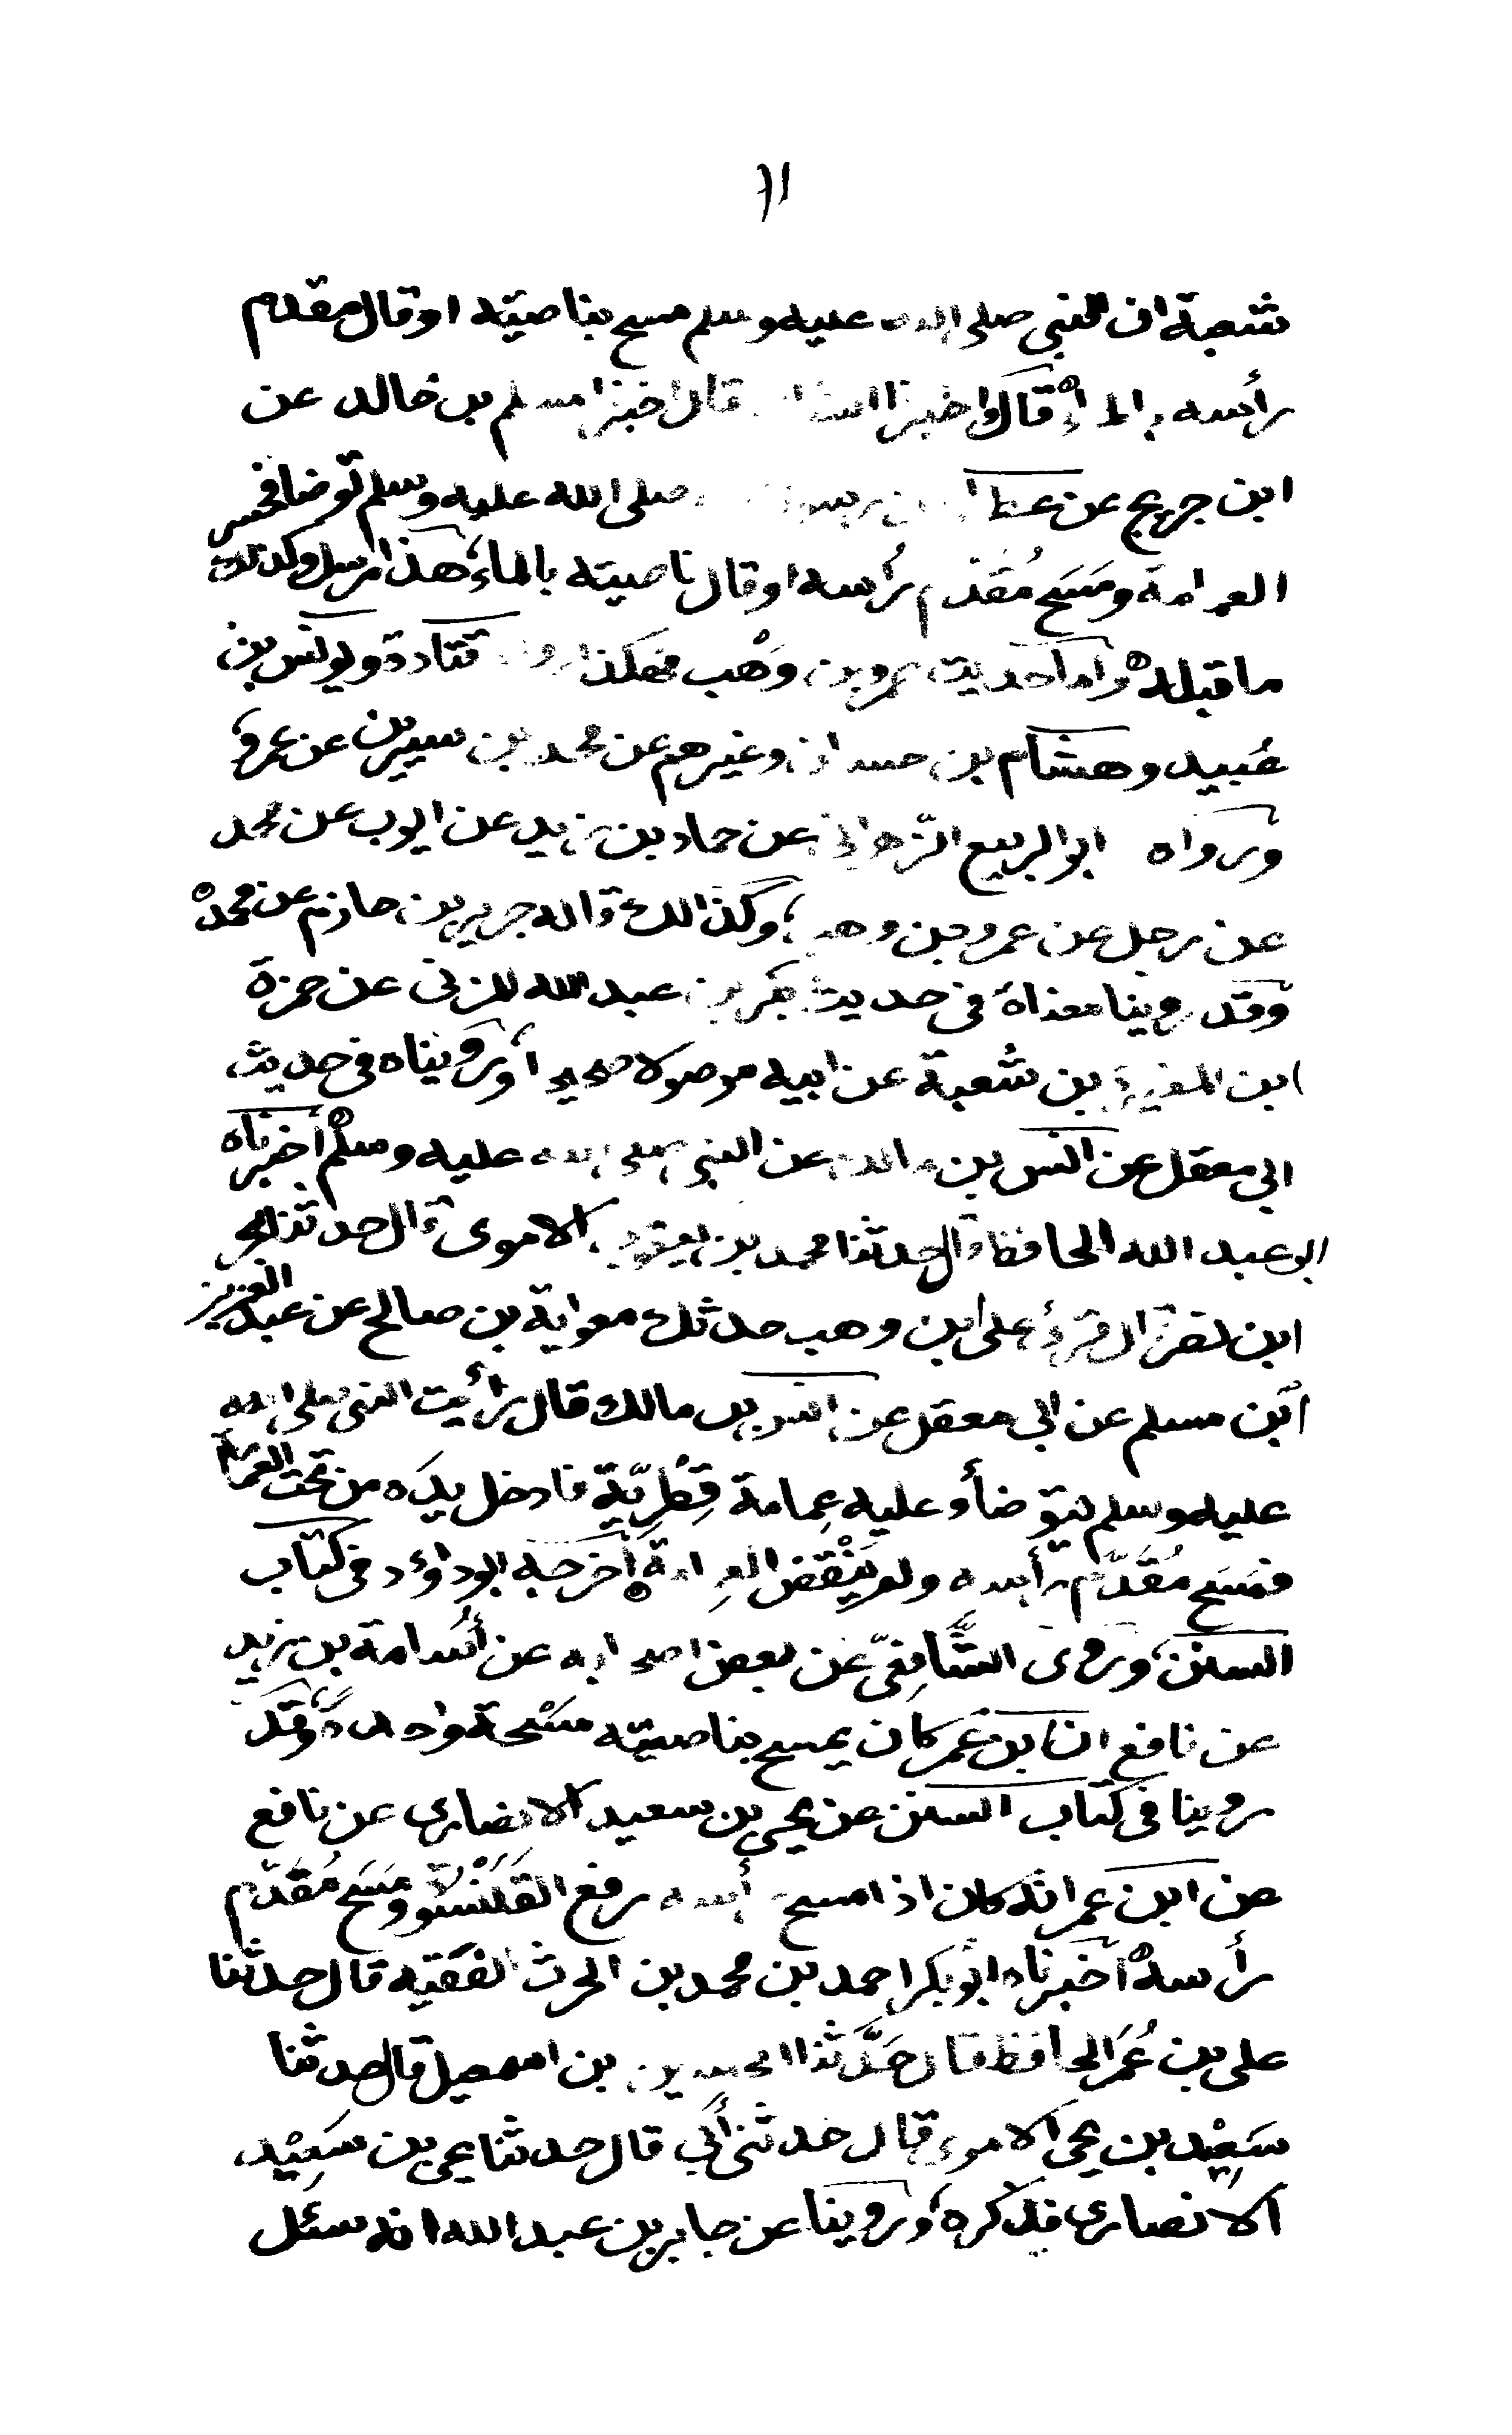 ٦١
شعبة ان النبي صلى الله عليه وسلم مسح بناصيته او قال مقدم
رأسه بالماء قال واخبرنا قال اخبرنا مسلم بن خالد عن
ابن جريج عن عطا صلى الله عليه وسلم توضا فحسر
العمامة ومَسَح مُقدَّم رَأسه او قال ناصيته بالماء، هذا مرسل وكذلك
ما قبله واما حديث عمرو بن وَهْب فهكذا قتادة ويونس بن
عُبيد وهشام بن حسان وغيرهم عن محمد بن سيرين عن عمرو،
ورواه ابو الربيع الزهراني عن حماد بن زيد عن ايوب عن محمد
عن رجل عن عمرو بن وهب، وكذالك قاله جرير بن حازم عن محمد
وقد روينا معناه في حديث بكر بن عبد الله المزنى عن حمزة
ابن المغيرة بن شُعبة عن ابيه موصولا صحيحا، ورويناه في حديث
ابي معقل عن انس بن مالك عن النبي صلى الله عليه وسلم أخبرناه
ابو عبد الله الحافظ قال حدثنا محمد بن يعقوب الاموى قال حدثنا بحر
ابن نصر قال قرئ على ابن وهب حدثك معوية بن صالح عن عبد العزيز
ابن مسلم عن ابي معقل عن انس بن مالك قال رأيت النبى صلى الله
عليه وسلم يتوضأ وعليه عِمامة قِطْرِيّة فادخل يده من تحت العمامة
فمسَح مُقَدَّم رأسه ولم يَنْقض العِمامة أخرجه ابو داؤد في كتاب
السنن، وروى الشَّافِعيّ عن بعض اصحابه عن أُسامة بن زيد
عن نافع ان ابن عُمر كان يمسح بناصيته مَسْحة واحدة، وقد
روينا في كتاب السنن عن يحيى بن سعيد الانصارى عن نافع
عن ابن عمر انه كان اذا مسح رأسه رفع القَلَنْسُوة ومَسَح مُقَدَّم
رأسه أخبرناه ابو بكر احمد بن محمد بن الحرث الفقيه قال حدثنا
على بن عُمَر الحافظ قال حَدَّثنا الحسين بن اسمعيل قال حدثنا
سَعِيْد بن يحيى الاموى قال حدثنى أبي قال حدثنا يحيى بن سَعِيْد
الانصارى فذكره، وروينا عن جابر بن عبد الله انه سئل